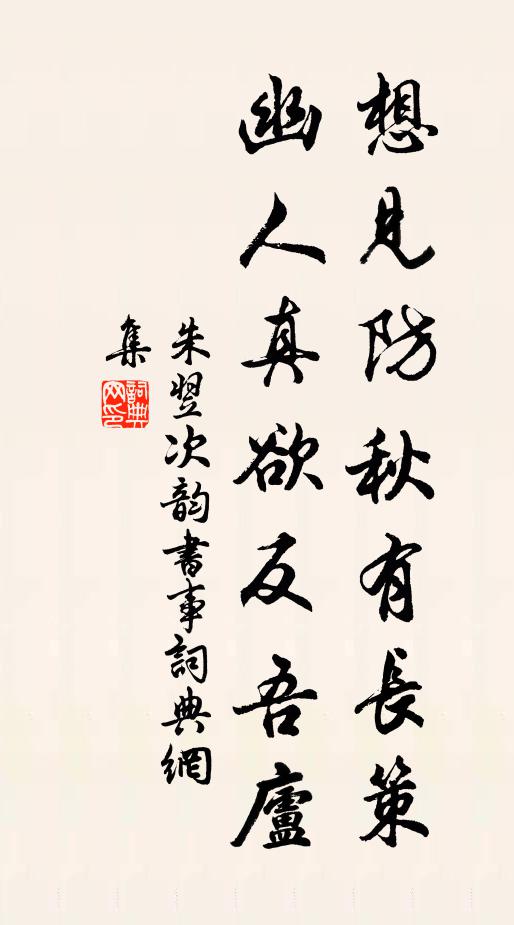 想見防秋有長策
幽人真欲反吾廬
朱翌次韵書事詞典網
集
詞典網印